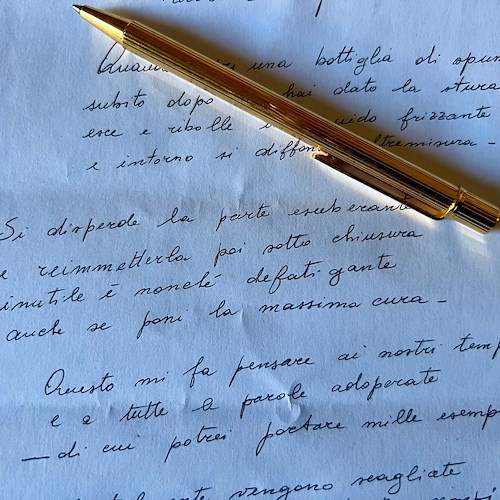 una bottiglia di
subito dopo hai dato la stura
esce e ribolle frizzante
e intorno si
Si disperde la parte esuberante
e reimmetterla poi sotto chiusura
inutile è nonché defatigante
anche se poni la massima cura -
Questo mi fa pensare ai nostri
e a tutte le parole adoperate
- di cui potrei portare mille
vengono scagliate